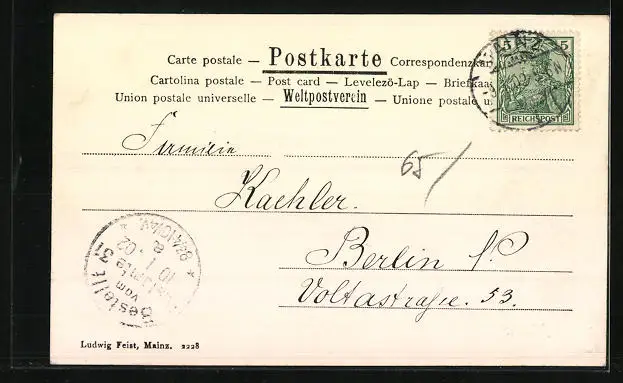 Carte postale — Postkarte — Correspondenzkar
Cartolina postale — Post card — Levelezö-Lap — Briefkaa
Union postale universelle — Weltpostverein — Unione postale u
5
REICHSPOST
65
Kaehler.
Berlin
Voltastraße. 53.
Bestellt
vom
Ludwig Feist, Mainz. 2228